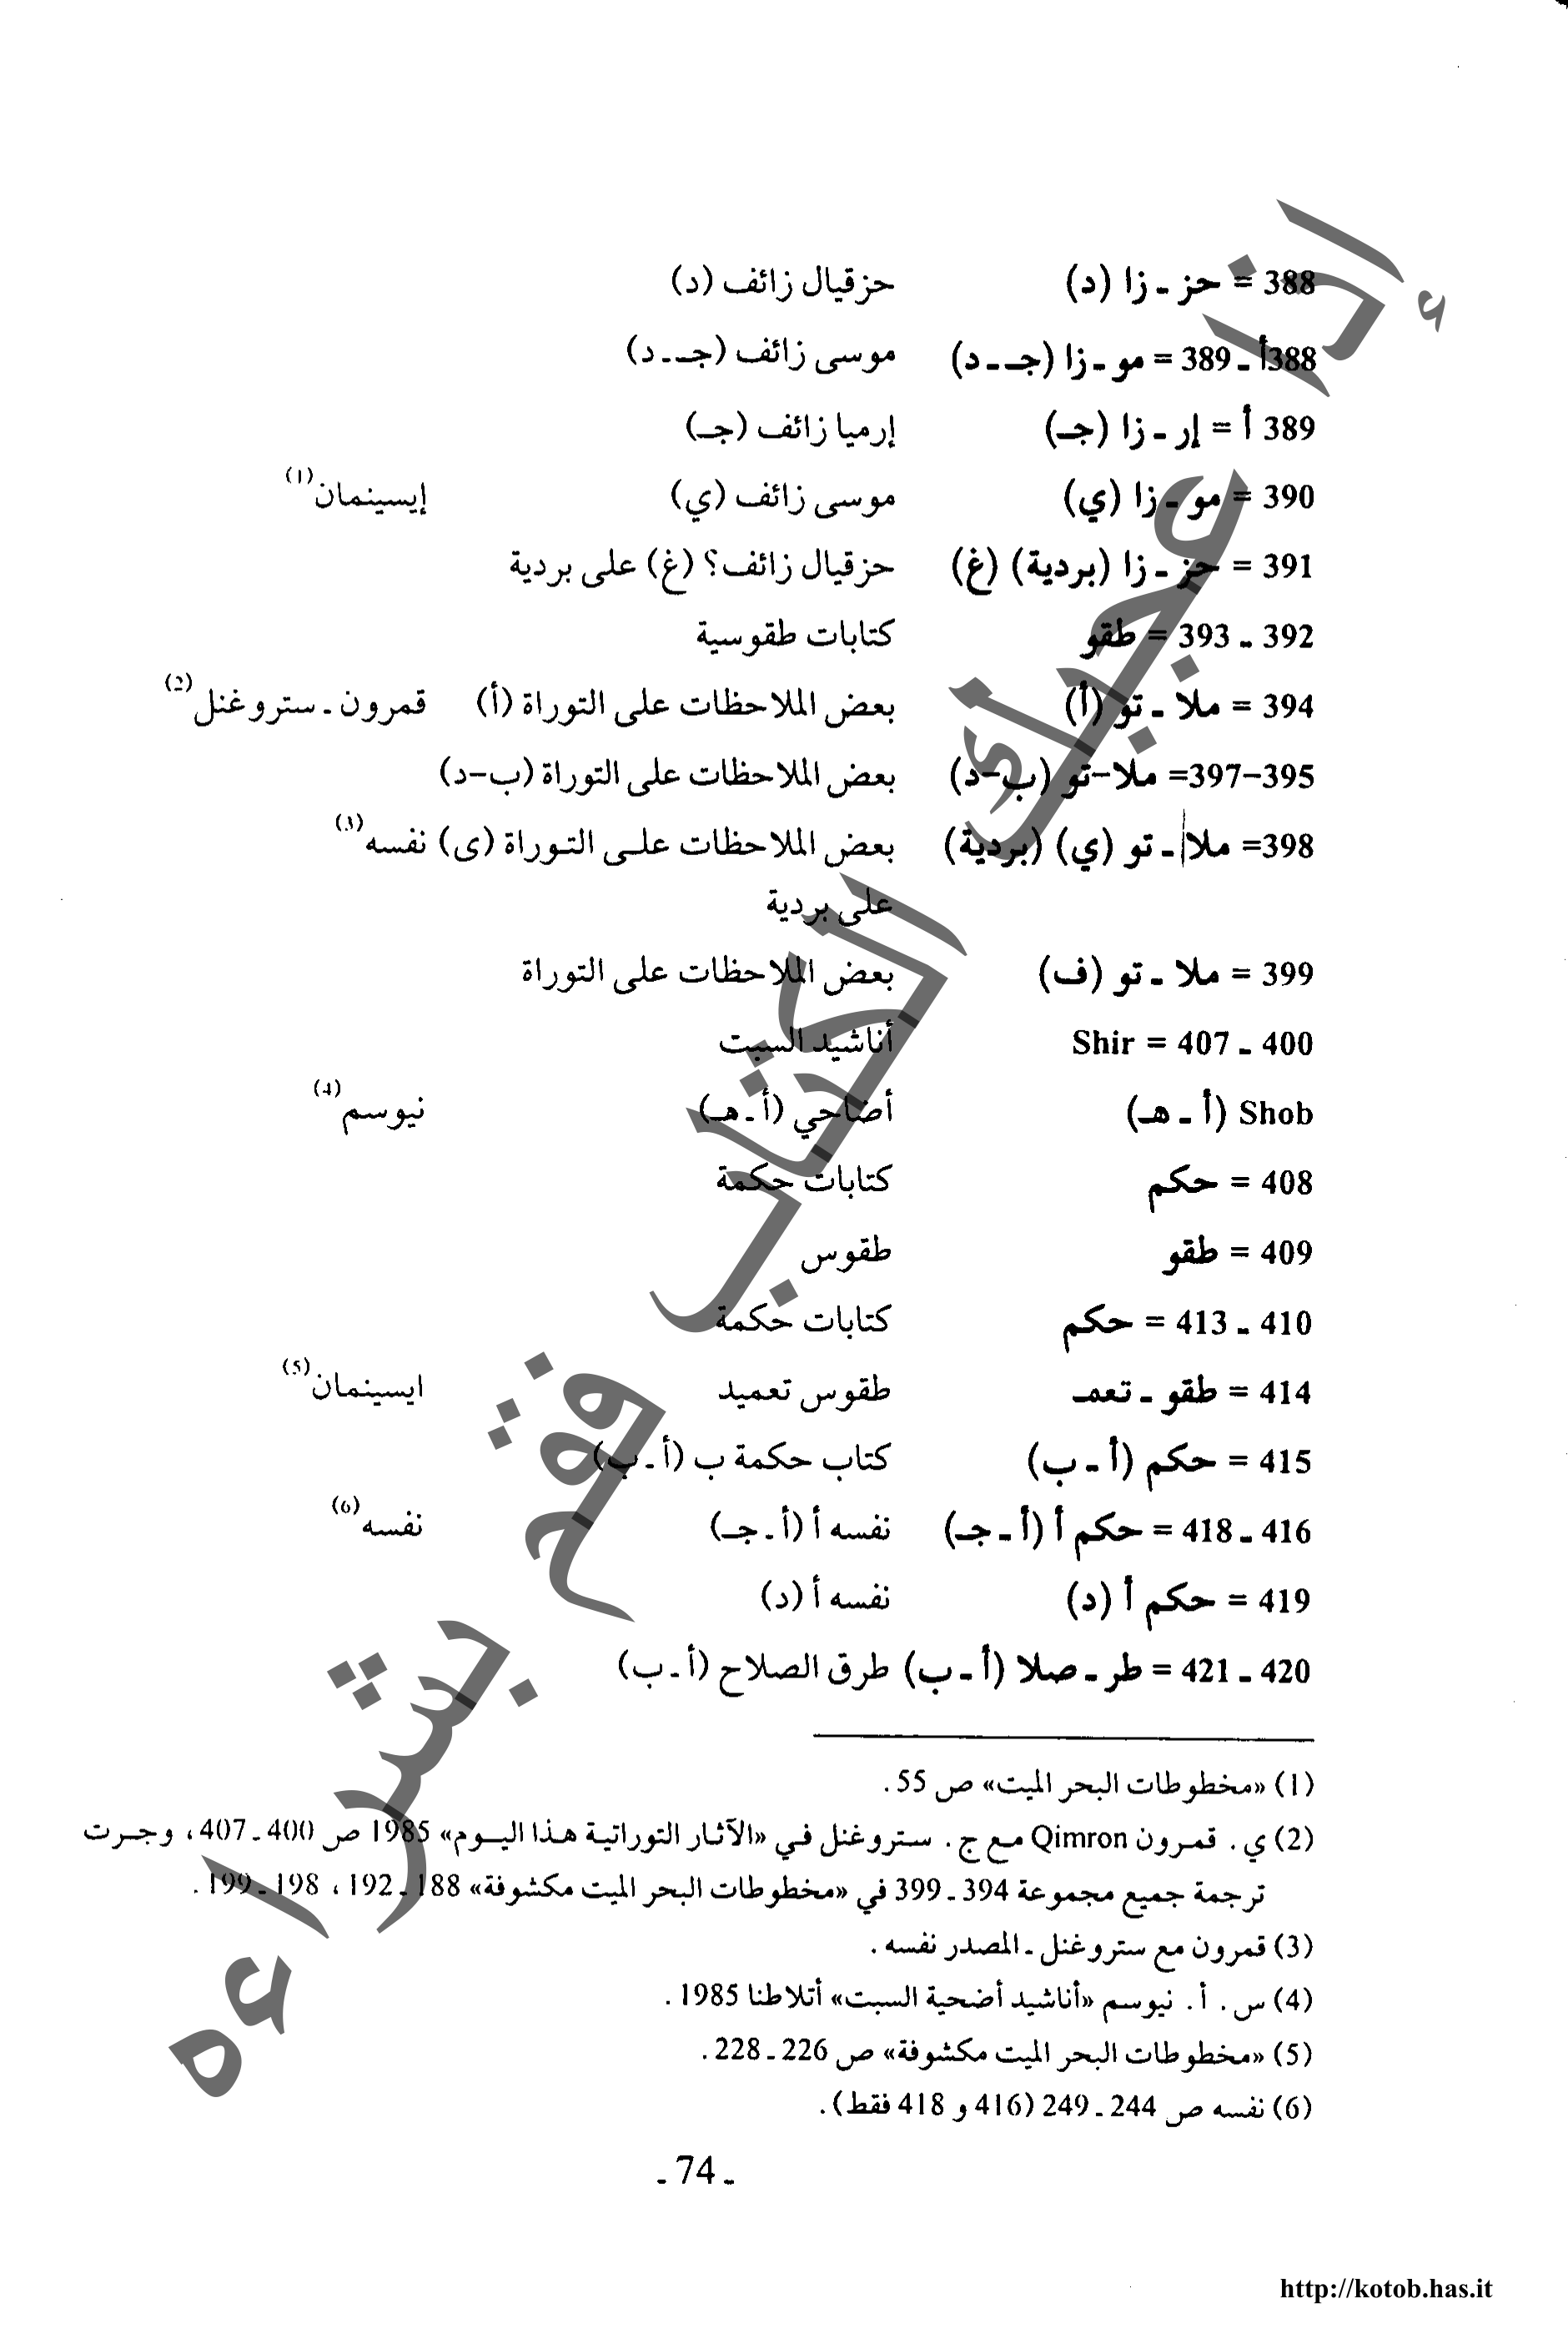 388 = حز ـ زا (د) حزقيال زائف (د)
388أ ـ 389 = مو ـ زا (جـ ـ د) موسى زائف (جـ ـ د)
389 أ = إر ـ زا (جـ) إرميا زائف (جـ)
390 = مو ـ زا (ي) موسى زائف (ي) إيسينمان(1)
391 = حز ـ زا (بردية) (غ) حزقيال زائف؟ (غ) على بردية
392 ـ 393 = طقو كتابات طقوسية
394 = ملا ـ تو (أ) بعض الملاحظات على التوراة (أ) قمرون ـ ستروغنل(2)
395-397= ملا-تو (ب-د) بعض الملاحظات على التوراة (ب-د)
398= ملا ـ تو (ي) (بردية) بعض الملاحظات علـى التـوراة (ى) نفسه(3)
على بردية
399 = ملا ـ تو (ف) بعض الملاحظات على التوراة
400 ـ 407 = Shir أناشيد السبت
Shob (أ ـ هـ) أضاحي (أ ـ هـ) نيوسم(4)
408 = حكم كتابات حكمة
409 = طقو طقوس
410 ـ 413 = حكم كتابات حكمة
414 = طقو ـ تعمـ طقوس تعميد ايسينمان(5)
415 = حكم (أ ـ ب) كتاب حكمة ب (أ ـ ب)
416 ـ 418 = حكم أ (أ ـ جـ) نفسه أ (أ ـ جـ) نفسه(6)
419 = حكم أ (د) نفسه أ (د)
420 ـ 421 = طر ـ صلا (أ ـ ب) طرق الصلاح (أ ـ ب)
(1) «مخطوطات البحر الميت» ص 55.
(2) ي. قمـرون Qimron مـع ج. ستـروغنل فـي «الآثـار التوراتيـة هـذا اليـوم» 1985 ص 400 ـ 407، وجـرت
ترجمة جميع مجموعة 394 ـ 399 في «مخطوطات البحر الميت مكشوفة» 188 ـ 192، 198 ـ 199.
(3) قمرون مع ستروغنل ـ المصدر نفسه.
(4) س. أ. نيوسم «أناشيد أضحية السبت» أتلاطنا 1985.
(5) «مخطوطات البحر الميت مكشوفة» ص 226 ـ 228.
(6) نفسه ص 244 ـ 249 (416 و 418 فقط).
ـ 74 ـ
http://kotob.has.it